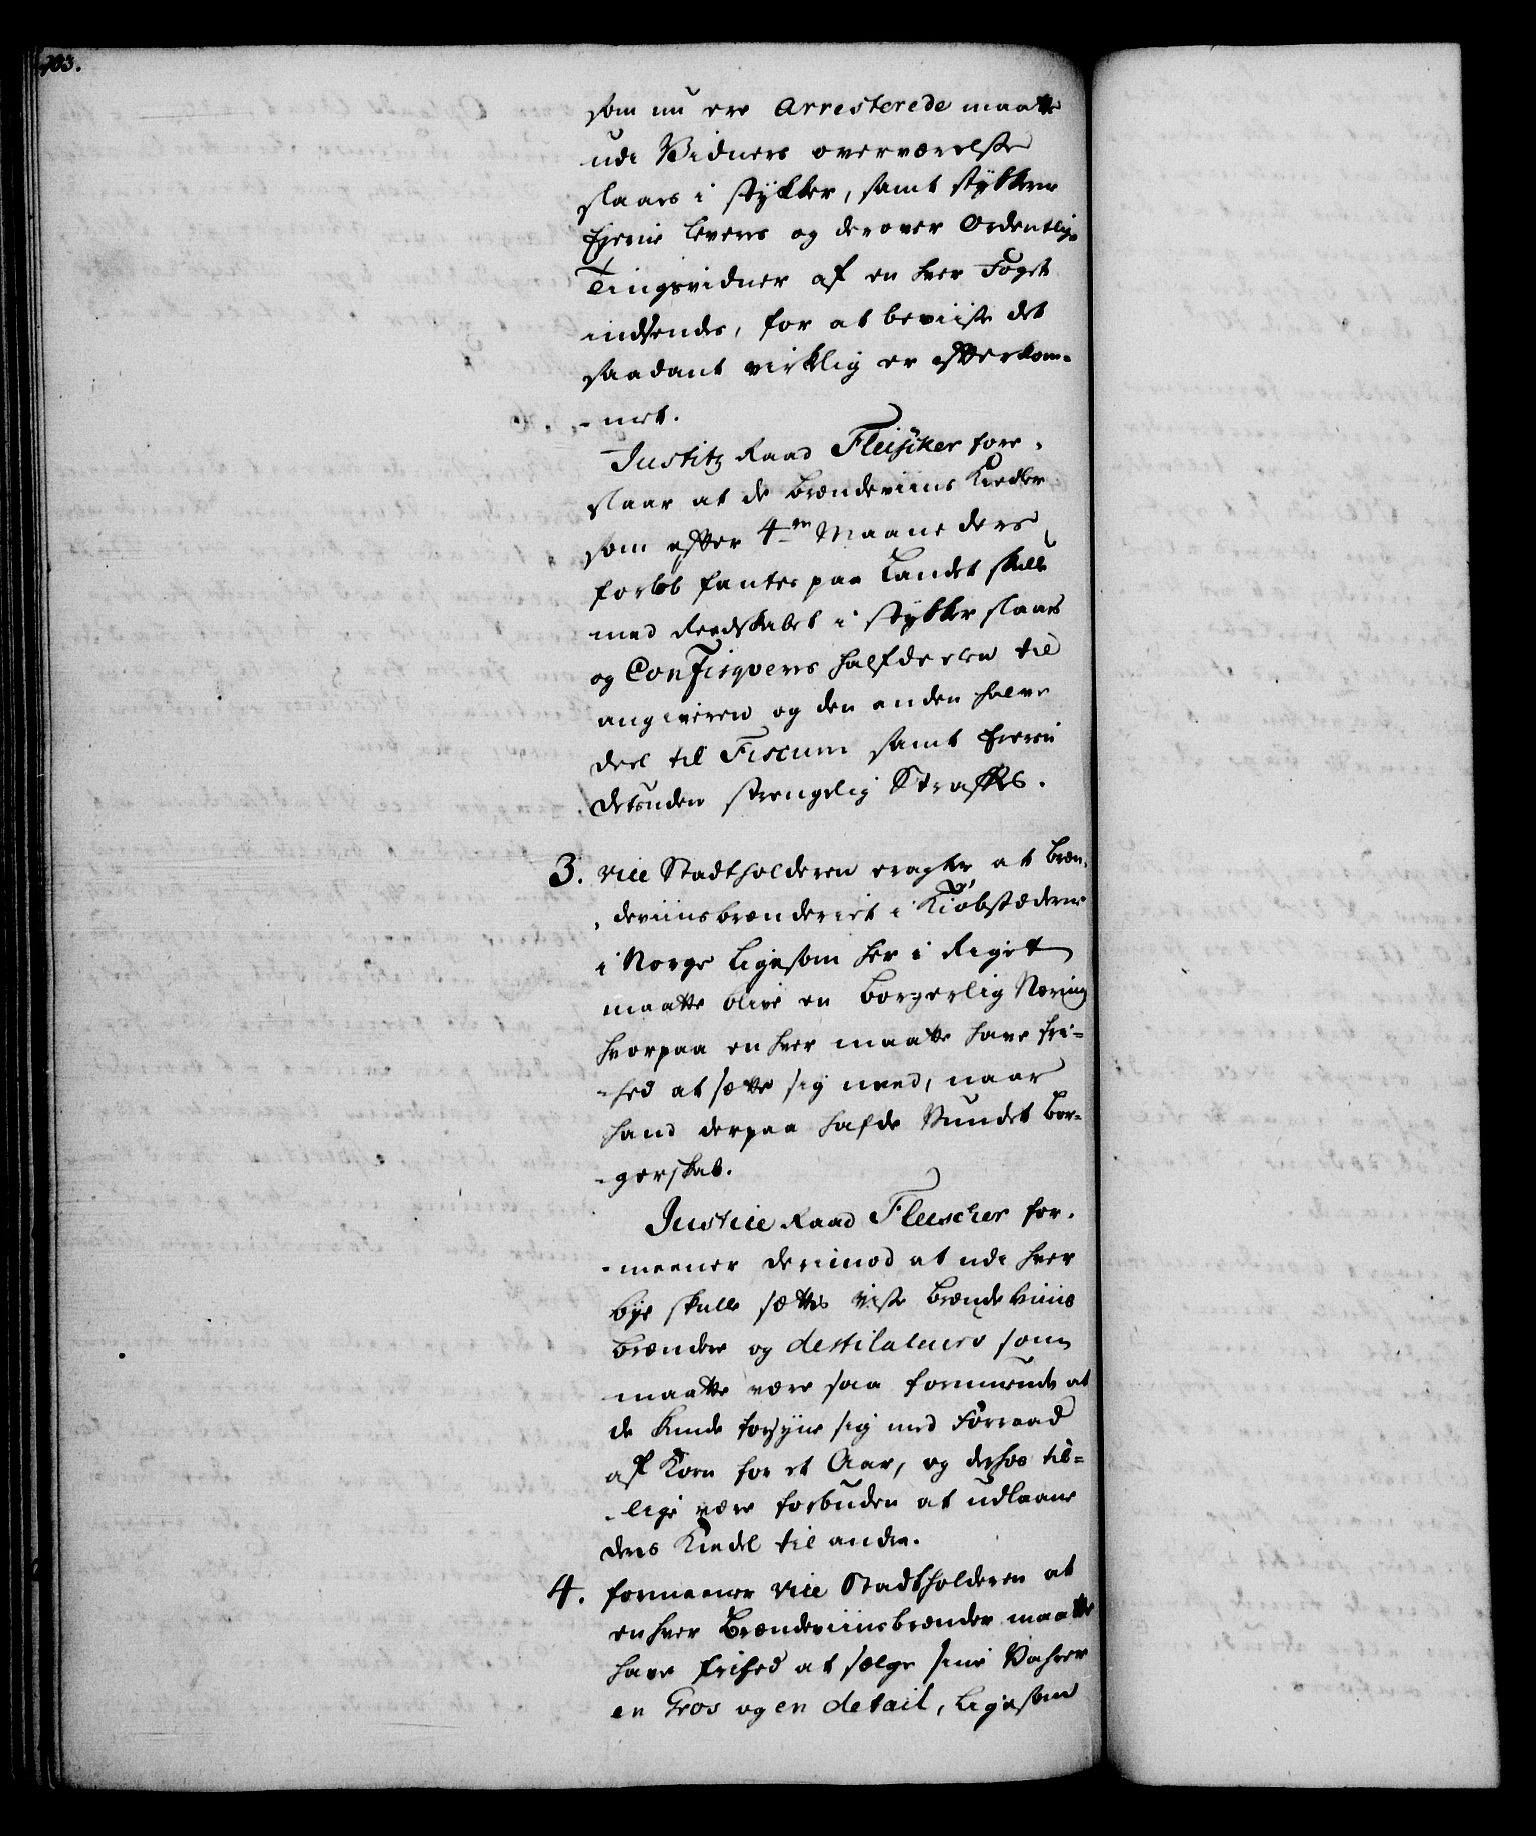 703.
som nu ere Arresterede maatte
udi Vidners overværelse
slaaes i stykker, samt stykkerne
Ejerne leveres og derover Ordentlig
Tingsvidner af en hver Foget
indsendes, for at beviise det
saadant virkelig er efterkom-
-met.
Justitz Raad Fleischer fore-
slaar at de brændeviins Kiedler
som efter 4re Maaneders
forløb fantes paa Landet skulle
med Reedskabet i stykker slaaes
og Confisqveres halfdeelen til
angiveren og den anden halve
deel til Fiscum samt Ejeren
desuden strengelig Straffes.
3. Vice Stadtholderen eragter at bræn-
-deviinsbrænderiet i Kiøbstæderne
i Norge ligesom her i Riget
maatte blive en borgerlig Næring
hvorpaa en hver maatte have fri-
-hed at sætte sig need, naar
hand derpaa hafde Vundet bor-
-gerskab.
Justice Raad Fleischer for-
-meener derimod at udi hver
bye skulle sættes visse brændeviins
brændere og destilateurs som
maatte være saa formuende at
de kunde forsyne sig med Forraad
af Korn for et Aar, og derhos til-
-lige være forbuden at udlaane
deres Kiedel til andre.
4. formeener Vice Stadtholderen at
enhver brændeviinsbrænder maatte
have frihed at sælge sine Vahrer
en Gros og en detail, ligesom